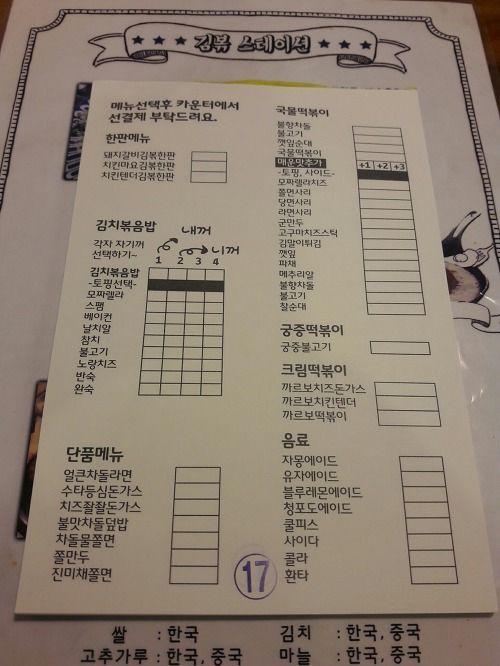 ★ ★ ★ 김볶 스테이션 ★ ★ ★
메뉴선택후 카운터에서
선결제 부탁드려요.
한판메뉴
돼지갈비김볶한판
치킨마요김볶한판
치킨텐더김볶한판
김치볶음밥
각자 자기꺼
선택하기~
내꺼
니꺼
1 2 3 4
김치볶음밥
-토핑선택-
모짜렐라
스팸
베이컨
날치알
참치
불고기
노랑치즈
반숙
완숙
단품메뉴
얼큰차돌라면
수타등심돈가스
치즈좔좔돈가스
불맛차돌덮밥
차돌물쫄면
쫄만두
진미채쫄면
국물떡볶이
불향차돌
불고기
깻잎순대
국물떡볶이
매운맛추가 +1 +2 +3
-토핑, 사이드-
모짜렐라치즈
쫄면사리
당면사리
라면사리
군만두
고구마치즈스틱
김말이튀김
깻잎
파채
메추리알
불향차돌
불고기
찰순대
궁중떡볶이
궁중불고기
크림떡볶이
까르보치즈돈가스
까르보치킨텐더
까르보떡볶이
음료
자몽에이드
유자에이드
블루레몬에이드
청포도에이드
쿨피스
사이다
콜라
환타
17
쌀 : 한국
김치 : 한국, 중국
고추가루 : 한국, 중국
마늘 : 한국, 중국